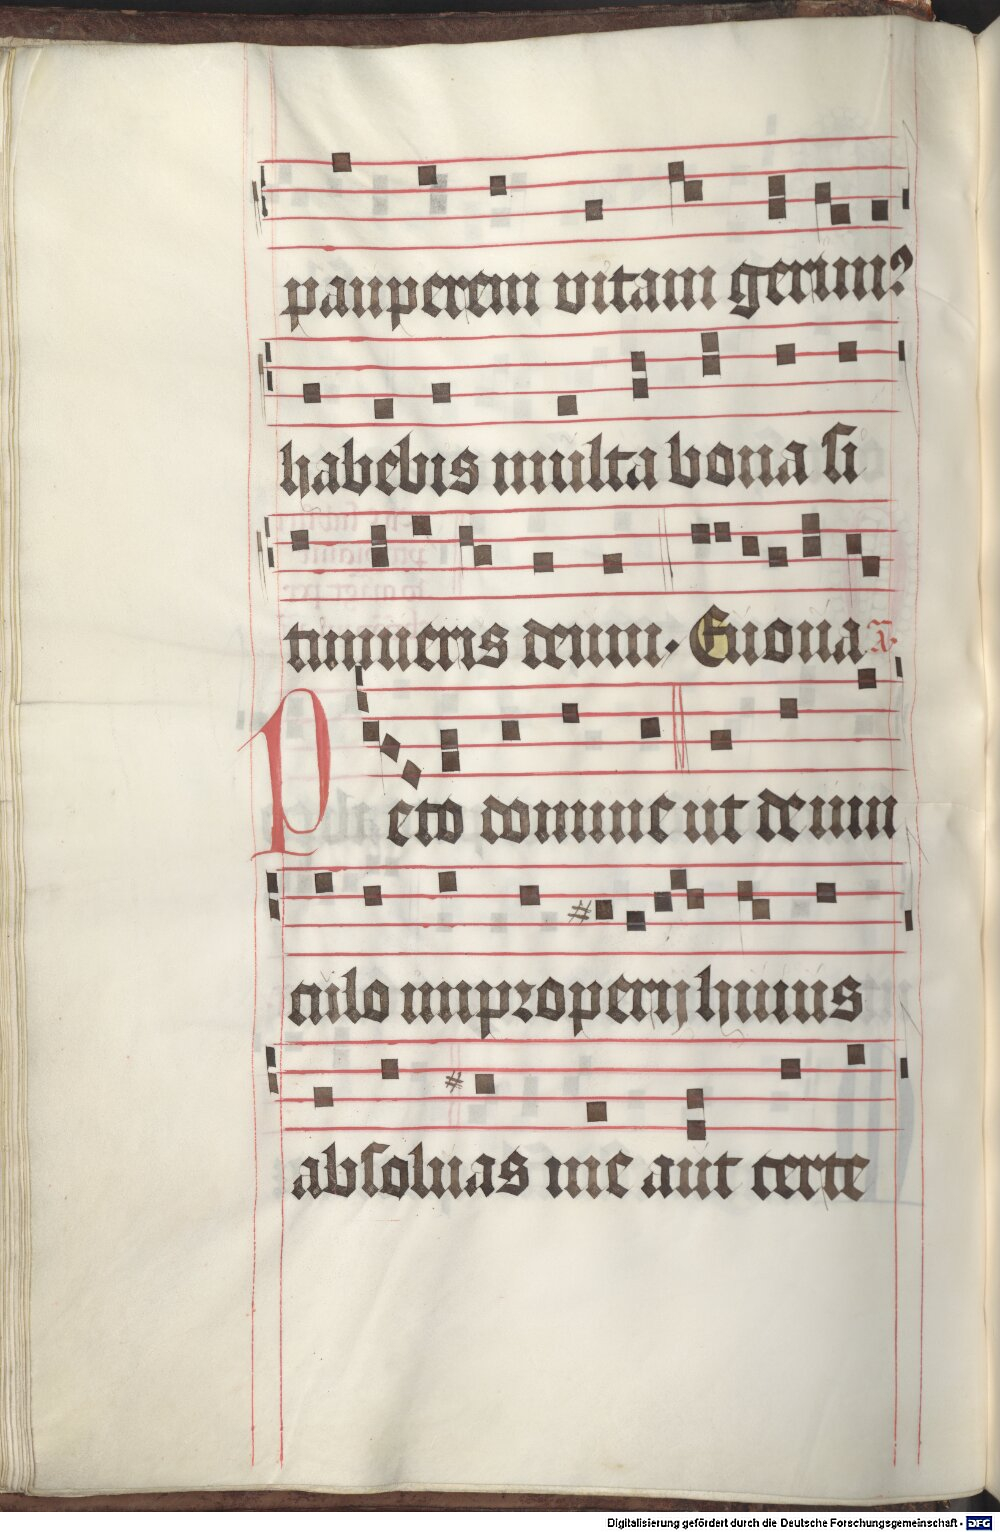 pauperem vitam gerim⁹
habebis multa bona si
timueris deum. Euoua A̅.
Peto domine ut de uin
culo improperij huius
absoluas me aut certe
Digitalisierung gefördert durch die Deutsche Forschungsgemeinschaft - DFG